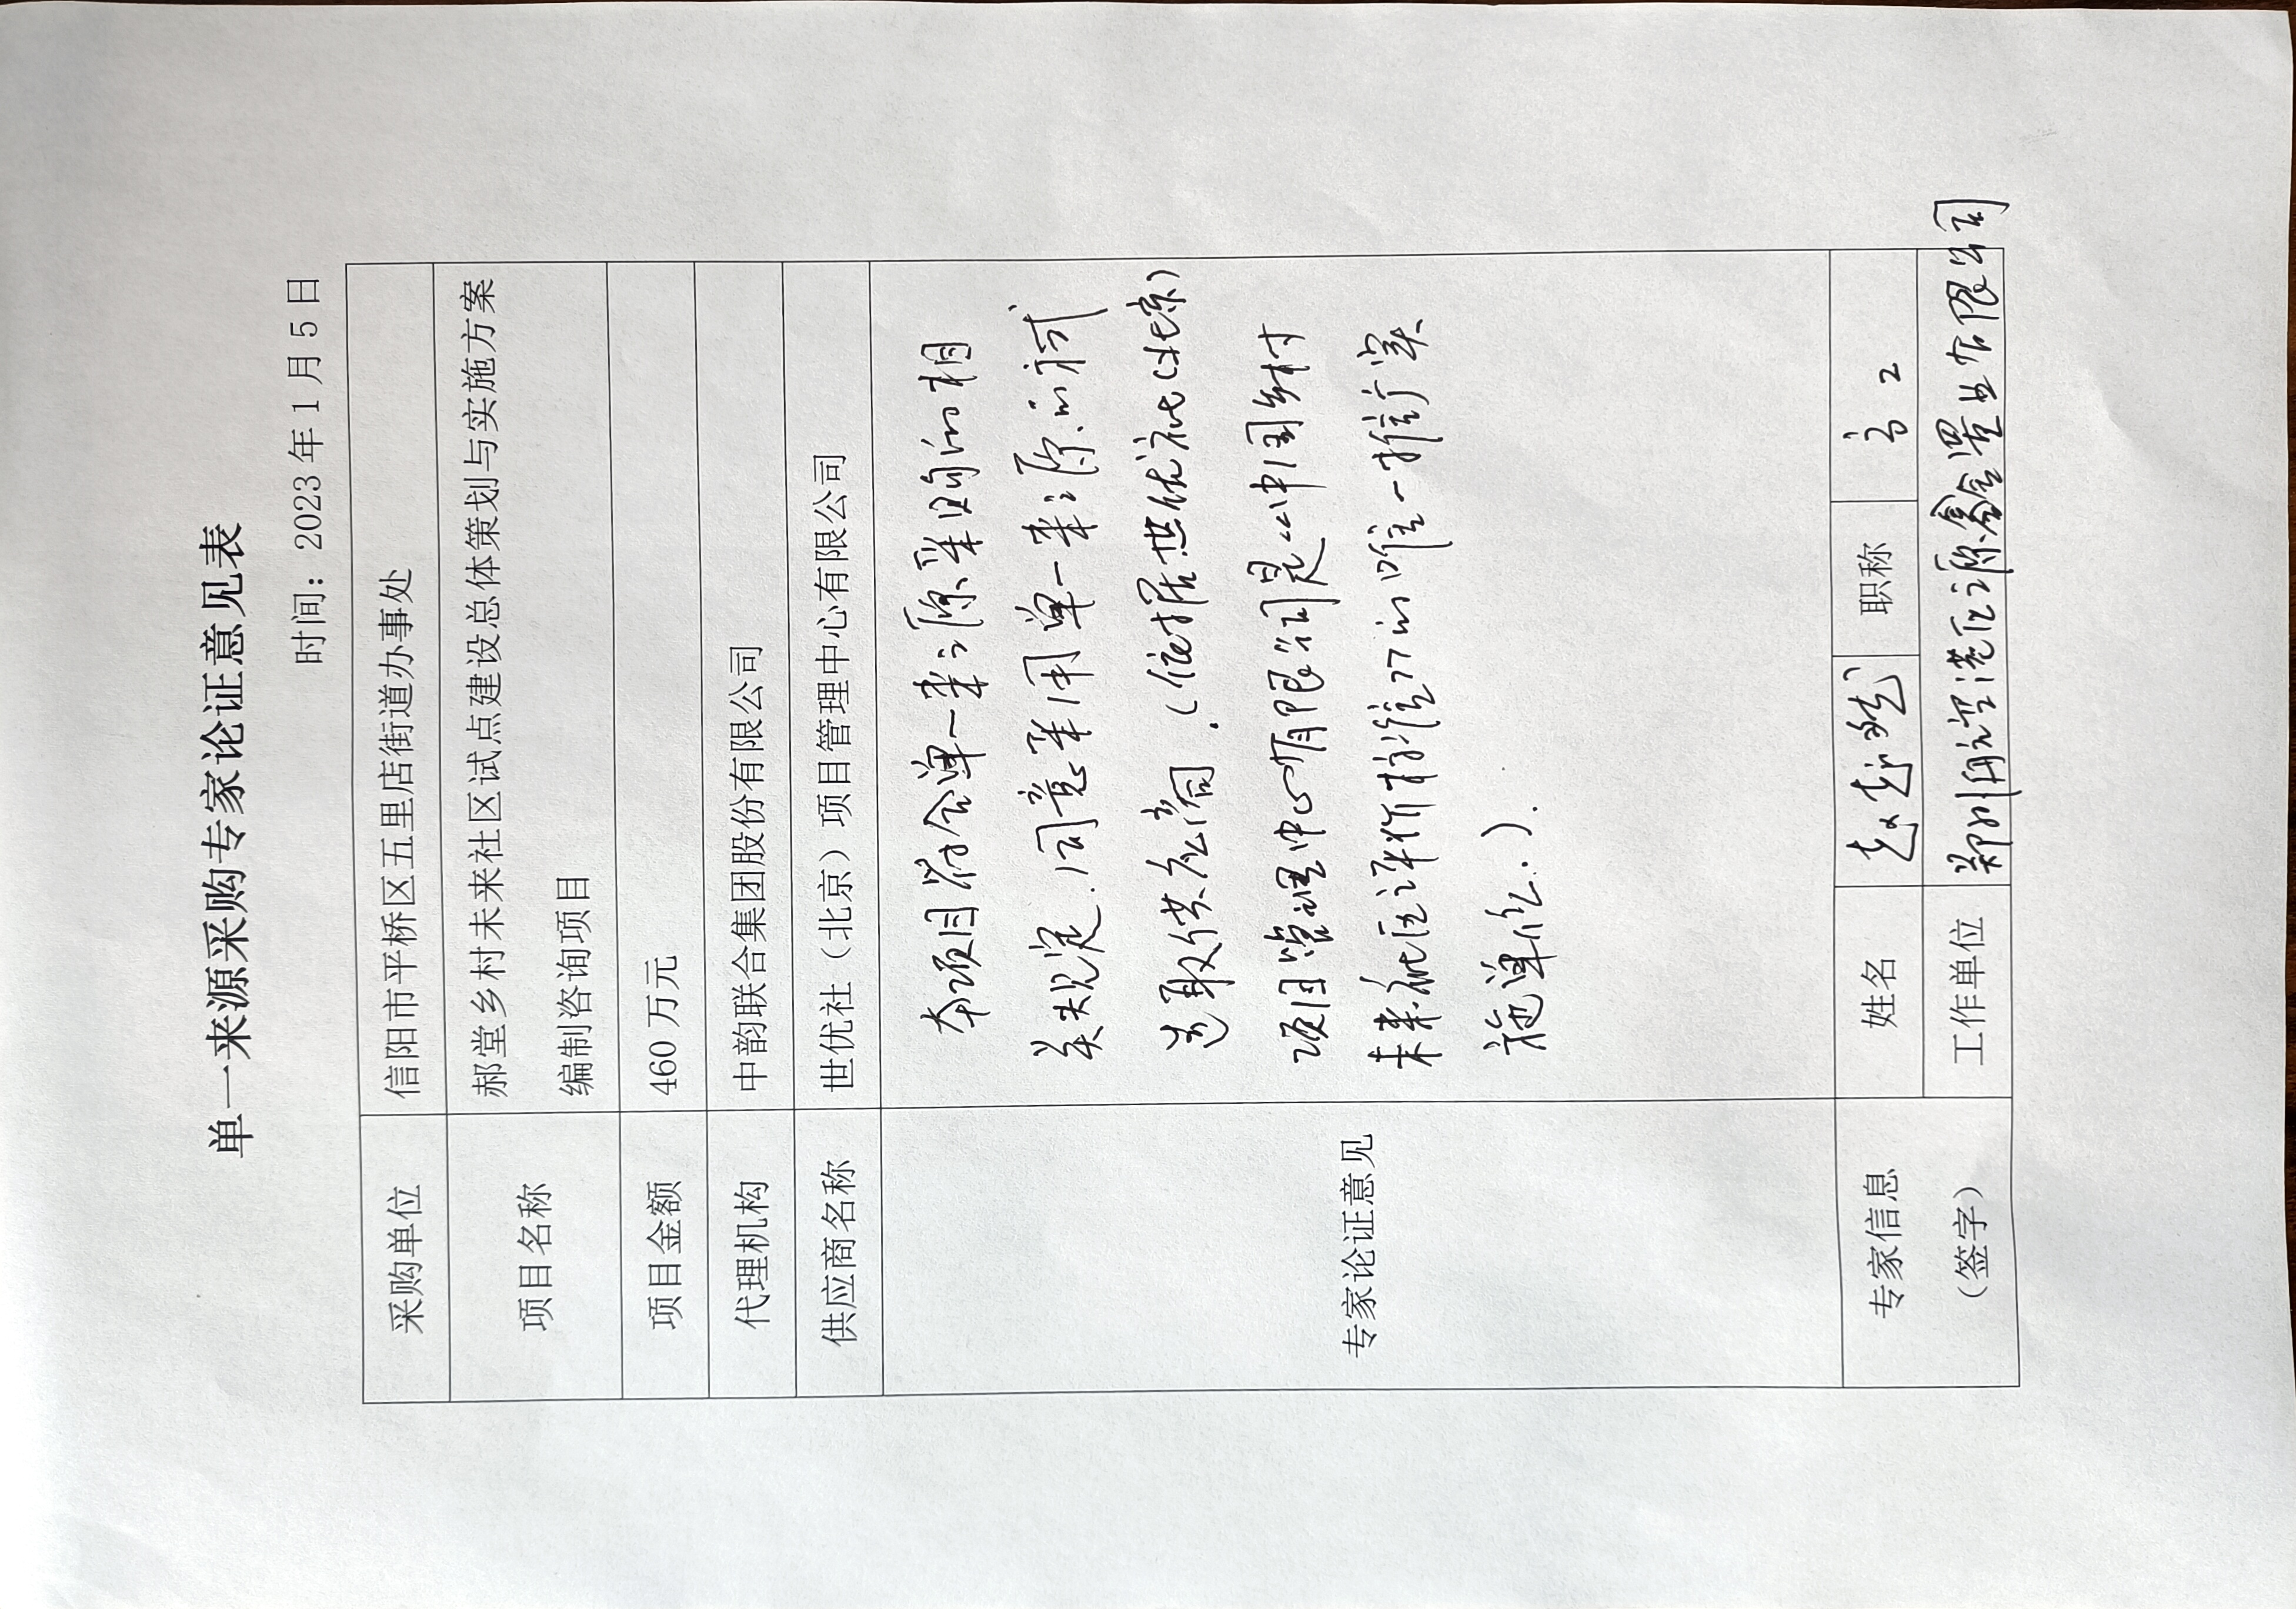 单一来源采购专家论证意见表
时间：2023年1月5日
采购单位 信阳市平桥区五里店街道办事处
项目名称 郝堂乡村未来社区试点建设总体策划与实施方案
编制咨询项目
项目金额 460万元
代理机构 中韵联合集团股份有限公司
供应商名称 世优社（北京）项目管理中心有限公司
专家论证意见
本项目符合单一来源采购的相
关规定.同意采用单一来源的方式
选取供应商.（依据世优社（北京）
项目管理中心有限公司是《中国乡村
未来社区评价标准》的唯一推广实
施单位.）.
专家信息
（签字）
姓名 职称 高工
工作单位 郑州航空港区源鑫置业有限公司